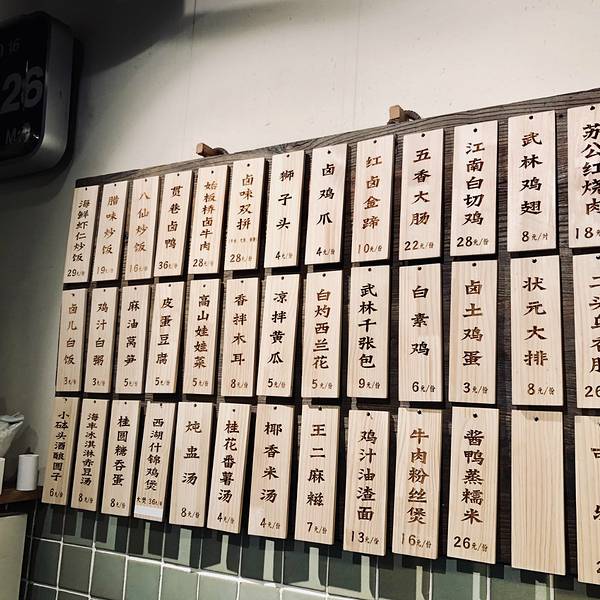 26
海鲜虾仁炒饭
29元/份
腊味炒饭
19元/份
八仙炒饭
16元/份
贯巷卤鸭
36元/份
始板桥卤牛肉
28元/份
卤味双拼
28元/份
狮子头
4元/份
卤鸡爪
4元/份
红卤金蹄
10元/份
五香大肠
22元/份
江南白切鸡
28元/份
武林鸡翅
8元/片
苏公红烧肉
18元
卤儿白饭
3元/份
鸡汁白粥
3元/份
麻油莴笋
5元/份
皮蛋豆腐
5元/份
高山娃娃菜
5元/份
香拌木耳
8元/份
凉拌黄瓜
5元/份
白灼西兰花
5元/份
武林千张包
9元/份
白素鸡
6元/份
卤土鸡蛋
3元/份
状元大排
8元/份
26
小砵头酒酿圆子
6元/份
海半冰淇淋赤豆汤
8元/份
桂圆糖吞蛋
8元/份
西湖什锦鸡煲
36元/份
炖盅汤
8元/份
桂花番薯汤
4元/份
椰香米汤
4元/份
王二麻糍
7元/份
鸡汁油渣面
13元/份
牛肉粉丝煲
16元/份
酱鸭蒸糯米
26元/份